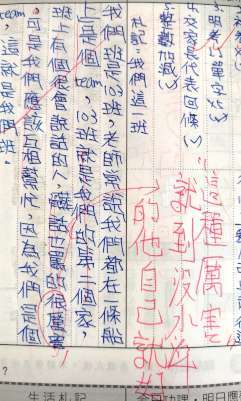 3.明考L1單字(✓)
4.交家長代表回條(✓)
5.整數加減(✓)
札記:我們這一班
我們班是103班,老師常說我們都在一條船
上,是個team,103班就是我們的第二個家,
班上有個很會說話的人,講話也罵的很厲害
,可是我們應該互相幫忙,因為我們是個
team,這就是我們班。
這種厲害
說到沒水準
的他自己就
?
生活札記